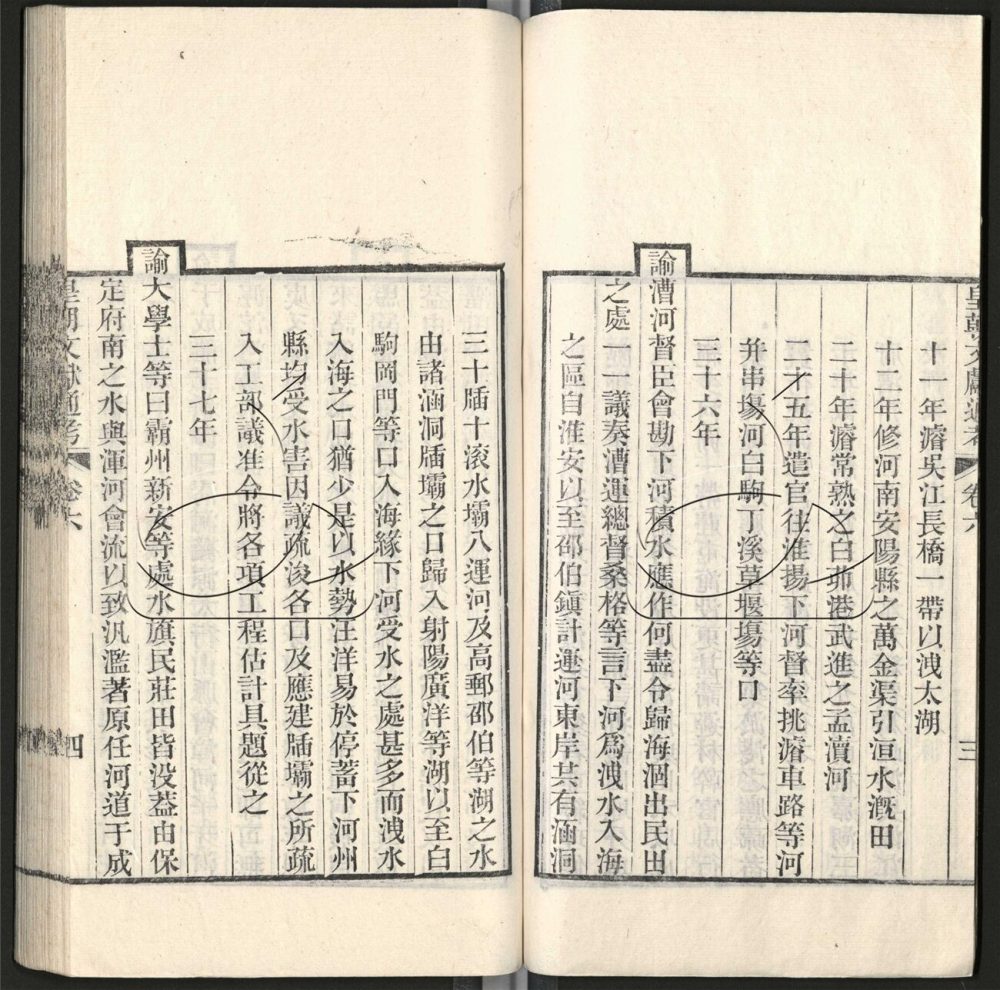 皇朝文獻通考 卷六 三
十一年濬吳江長橋一帶以洩太湖
十二年修河南安陽縣之萬金渠引洹水溉田
二十年濬常熟之白茆港武進之孟瀆河
二十五年遣官往淮揚下河督率挑濬車路等河
并串塲河白駒丁溪草堰塲等口
三十六年
諭漕河督臣會勘下河積水應作何盡令歸海涸出民田
之處一一議奏漕運總督桑格等言下河爲洩水入海
之區自淮安以至邵伯鎮計運河東岸共有涵洞
三十牐十滚水壩八運河及高郵邵伯等湖之水
由諸涵洞牐壩之口歸入射陽廣洋等湖以至白
駒岡門等口入海緣下河受水之處甚多而洩水
入海之口猶少是以水勢汪洋易於停蓄下河州
縣均受水害因議疏浚各口及應建牐壩之所疏
入工部議准令將各項工程估計具題從之
三十七年
諭大學士等曰霸州新安等處水旗民莊田皆没葢由保
定府南之水與渾河會流以致汎濫著原任河道于成
皇朝文獻通考 卷六 四